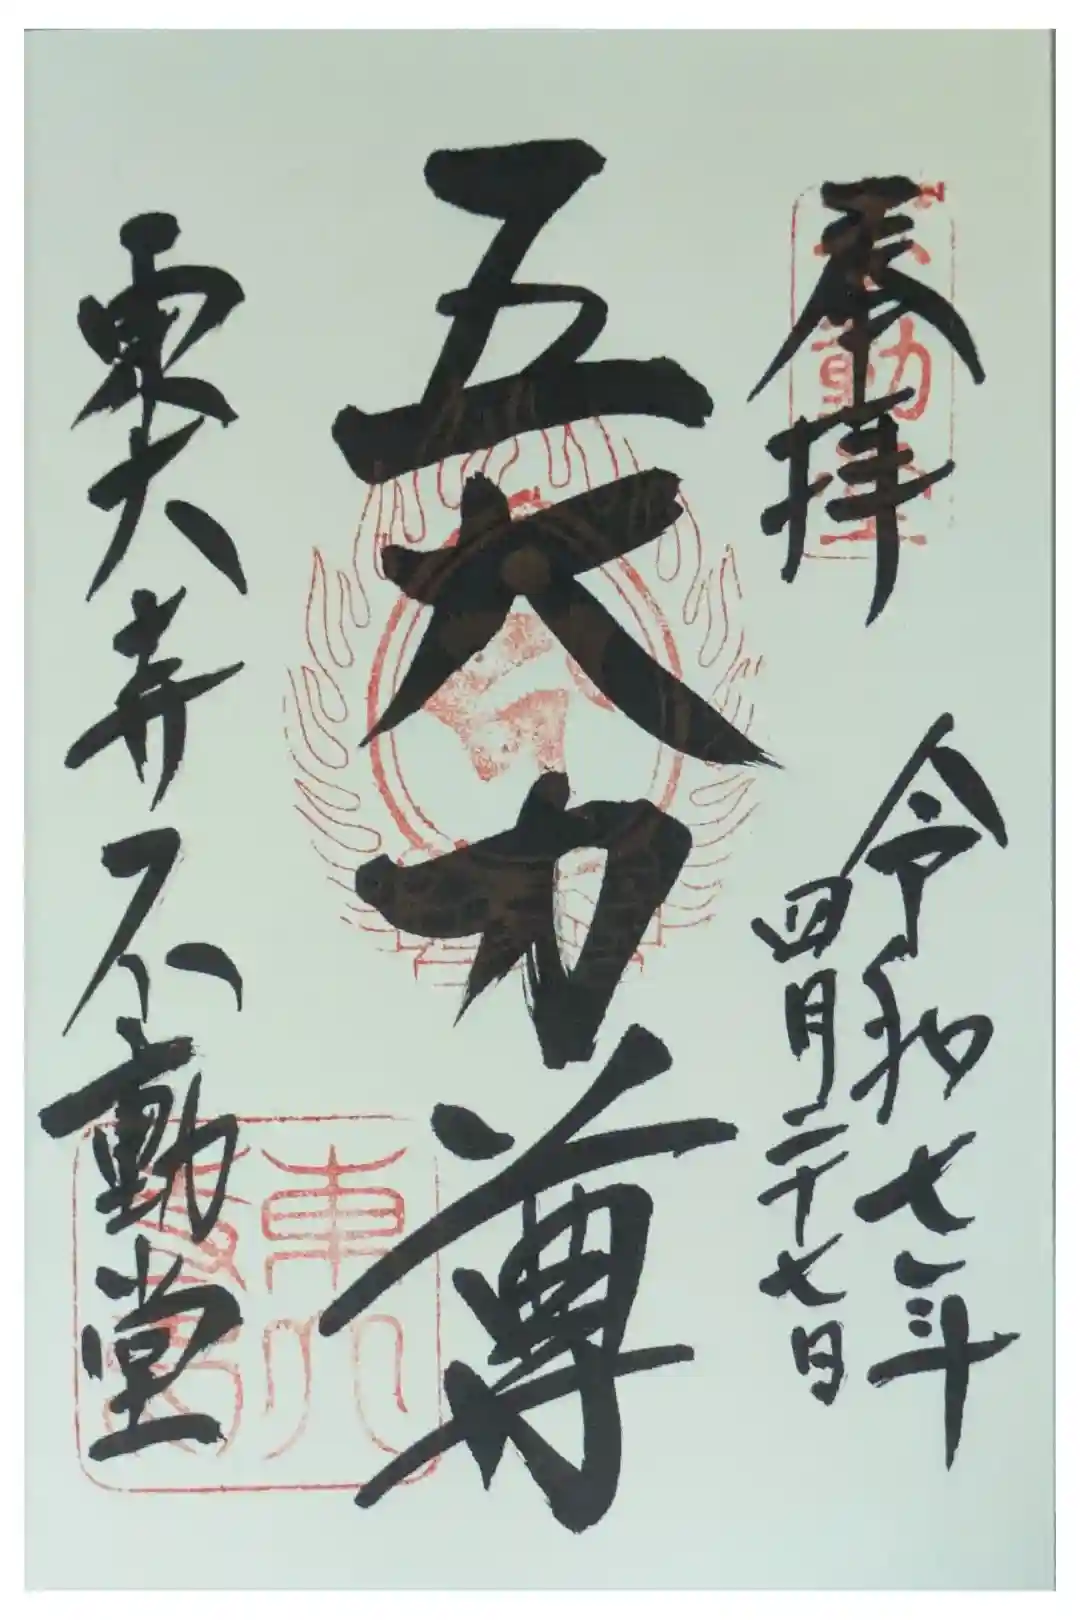 奉拝
令和七年
四月二十七日
五大力尊
東大寺不動堂
不動堂
東大